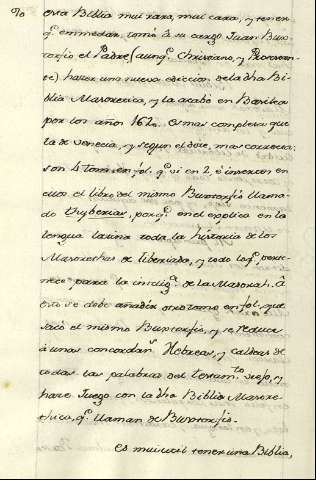 esta Biblia mui rara, mui cara, y tener
q.e enmedar, tomó à su cargo Juan Bux-
torfio el Padre, (aunq.e Christiano, y Protestan-
te) hacer una nueva edicion de la dha Bi-
blia Masoretica, y la acabó en Basilea
por los años 1620. es mas completa que
la de venecia, y segun el dice, mas correcta:
son 4 tom. en fol. q.e vi en 2, è inserta en
ellos el libro del mismo Buxtorfio llama-
do Thyberias, porq.e en el explica en la
lengua latina toda la historia de los
Masorethas de Tiberiada, y todo lo q.e perte-
nece para la intelig.a de la Masorah. À
esto se debe añadir otro tomo en fol. que
sacó el mismo Buxtorfio, y se reduce
à unas concordan.s Hebreas, y caldeas de
todas las palabras del testam.to viejo, y
hace Juego con la dha Biblia Masore-
thica, q.e llaman de Buxtorfio.
es mui util tener una Biblia,